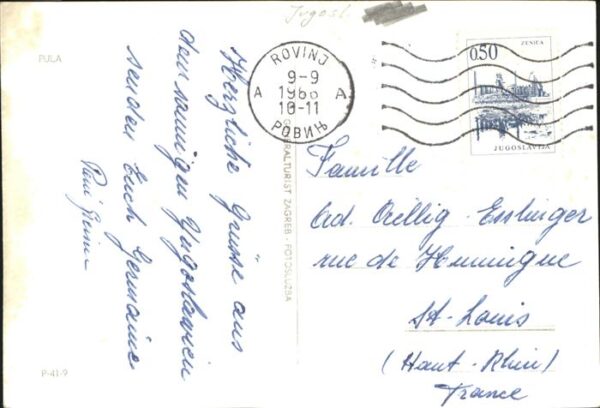 Jugosl.
PULA
Herzliche Grüsse aus
dem sonnigen Yugoslavien
senden Euch Germaine
ROVINJ
9-9
A 1966 A
10-11
РОВИЊ
ZENICA
0,50
JUGOSLAVIJA
GENERALTURIST ZAGREB - FOTOSLUŽBA
Famille
Ad. Oellig-Esslinger
rue de Huningue
St-Louis
(Haut-Rhin)
France
P-41-9